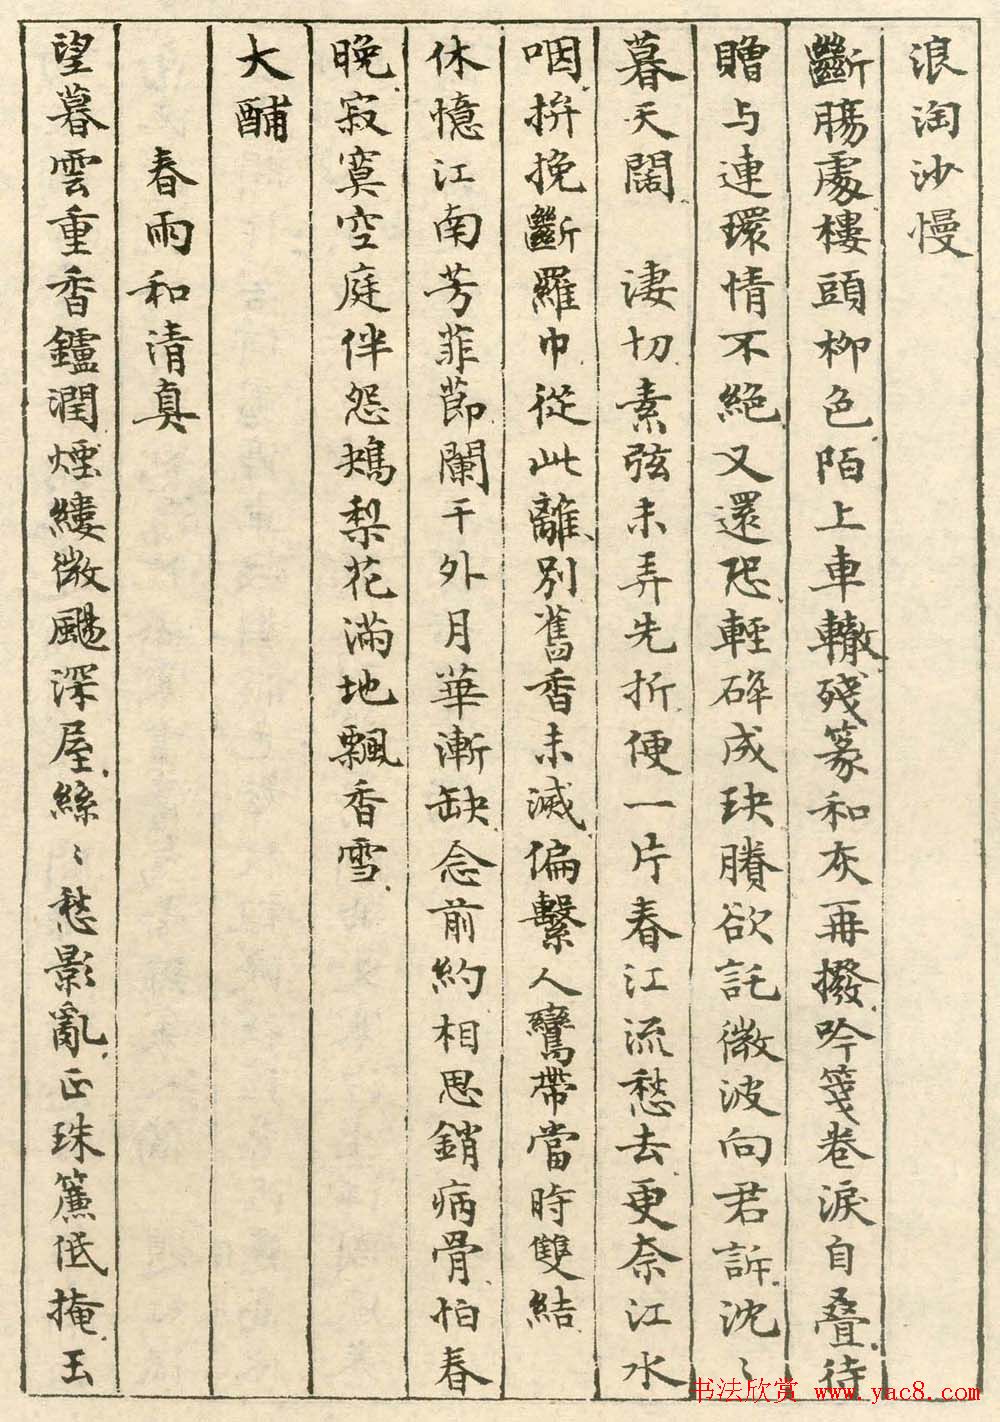 浪淘沙慢
斷腸處樓頭柳色陌上車轍殘篆和灰再撥吟箋卷淚自叠待
贈与連環情不絕又還恐輕碎成玦賸欲託微波向君訴沈〻
暮天闊　淒切素弦未弄先折便一片春江流愁去更奈江水
咽拚挽斷羅巾從此離別舊香未滅偏繫人鸞帶當時雙結
休憶江南芳菲節闌干外月華漸缺念前約相思銷病骨怕春
晚寂寞空庭伴怨鴂梨花滿地飄香雪
大酺
春雨和清真
望暮雲重香鑪潤煙縷微颺深屋絲〻愁影亂正珠簾低掩玉
书法欣赏 www.yac8.com